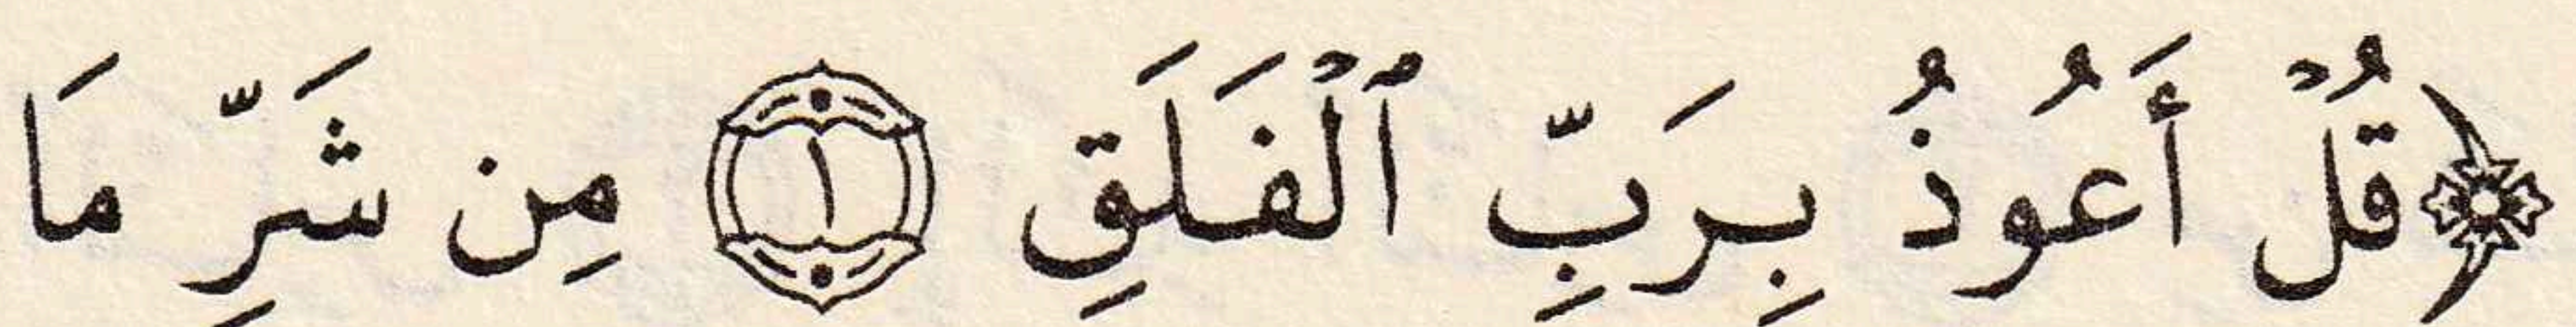 ﴿قُلْ أَعُوذُ بِرَبِّ ٱلْفَلَقِ ١ مِن شَرِّ مَا